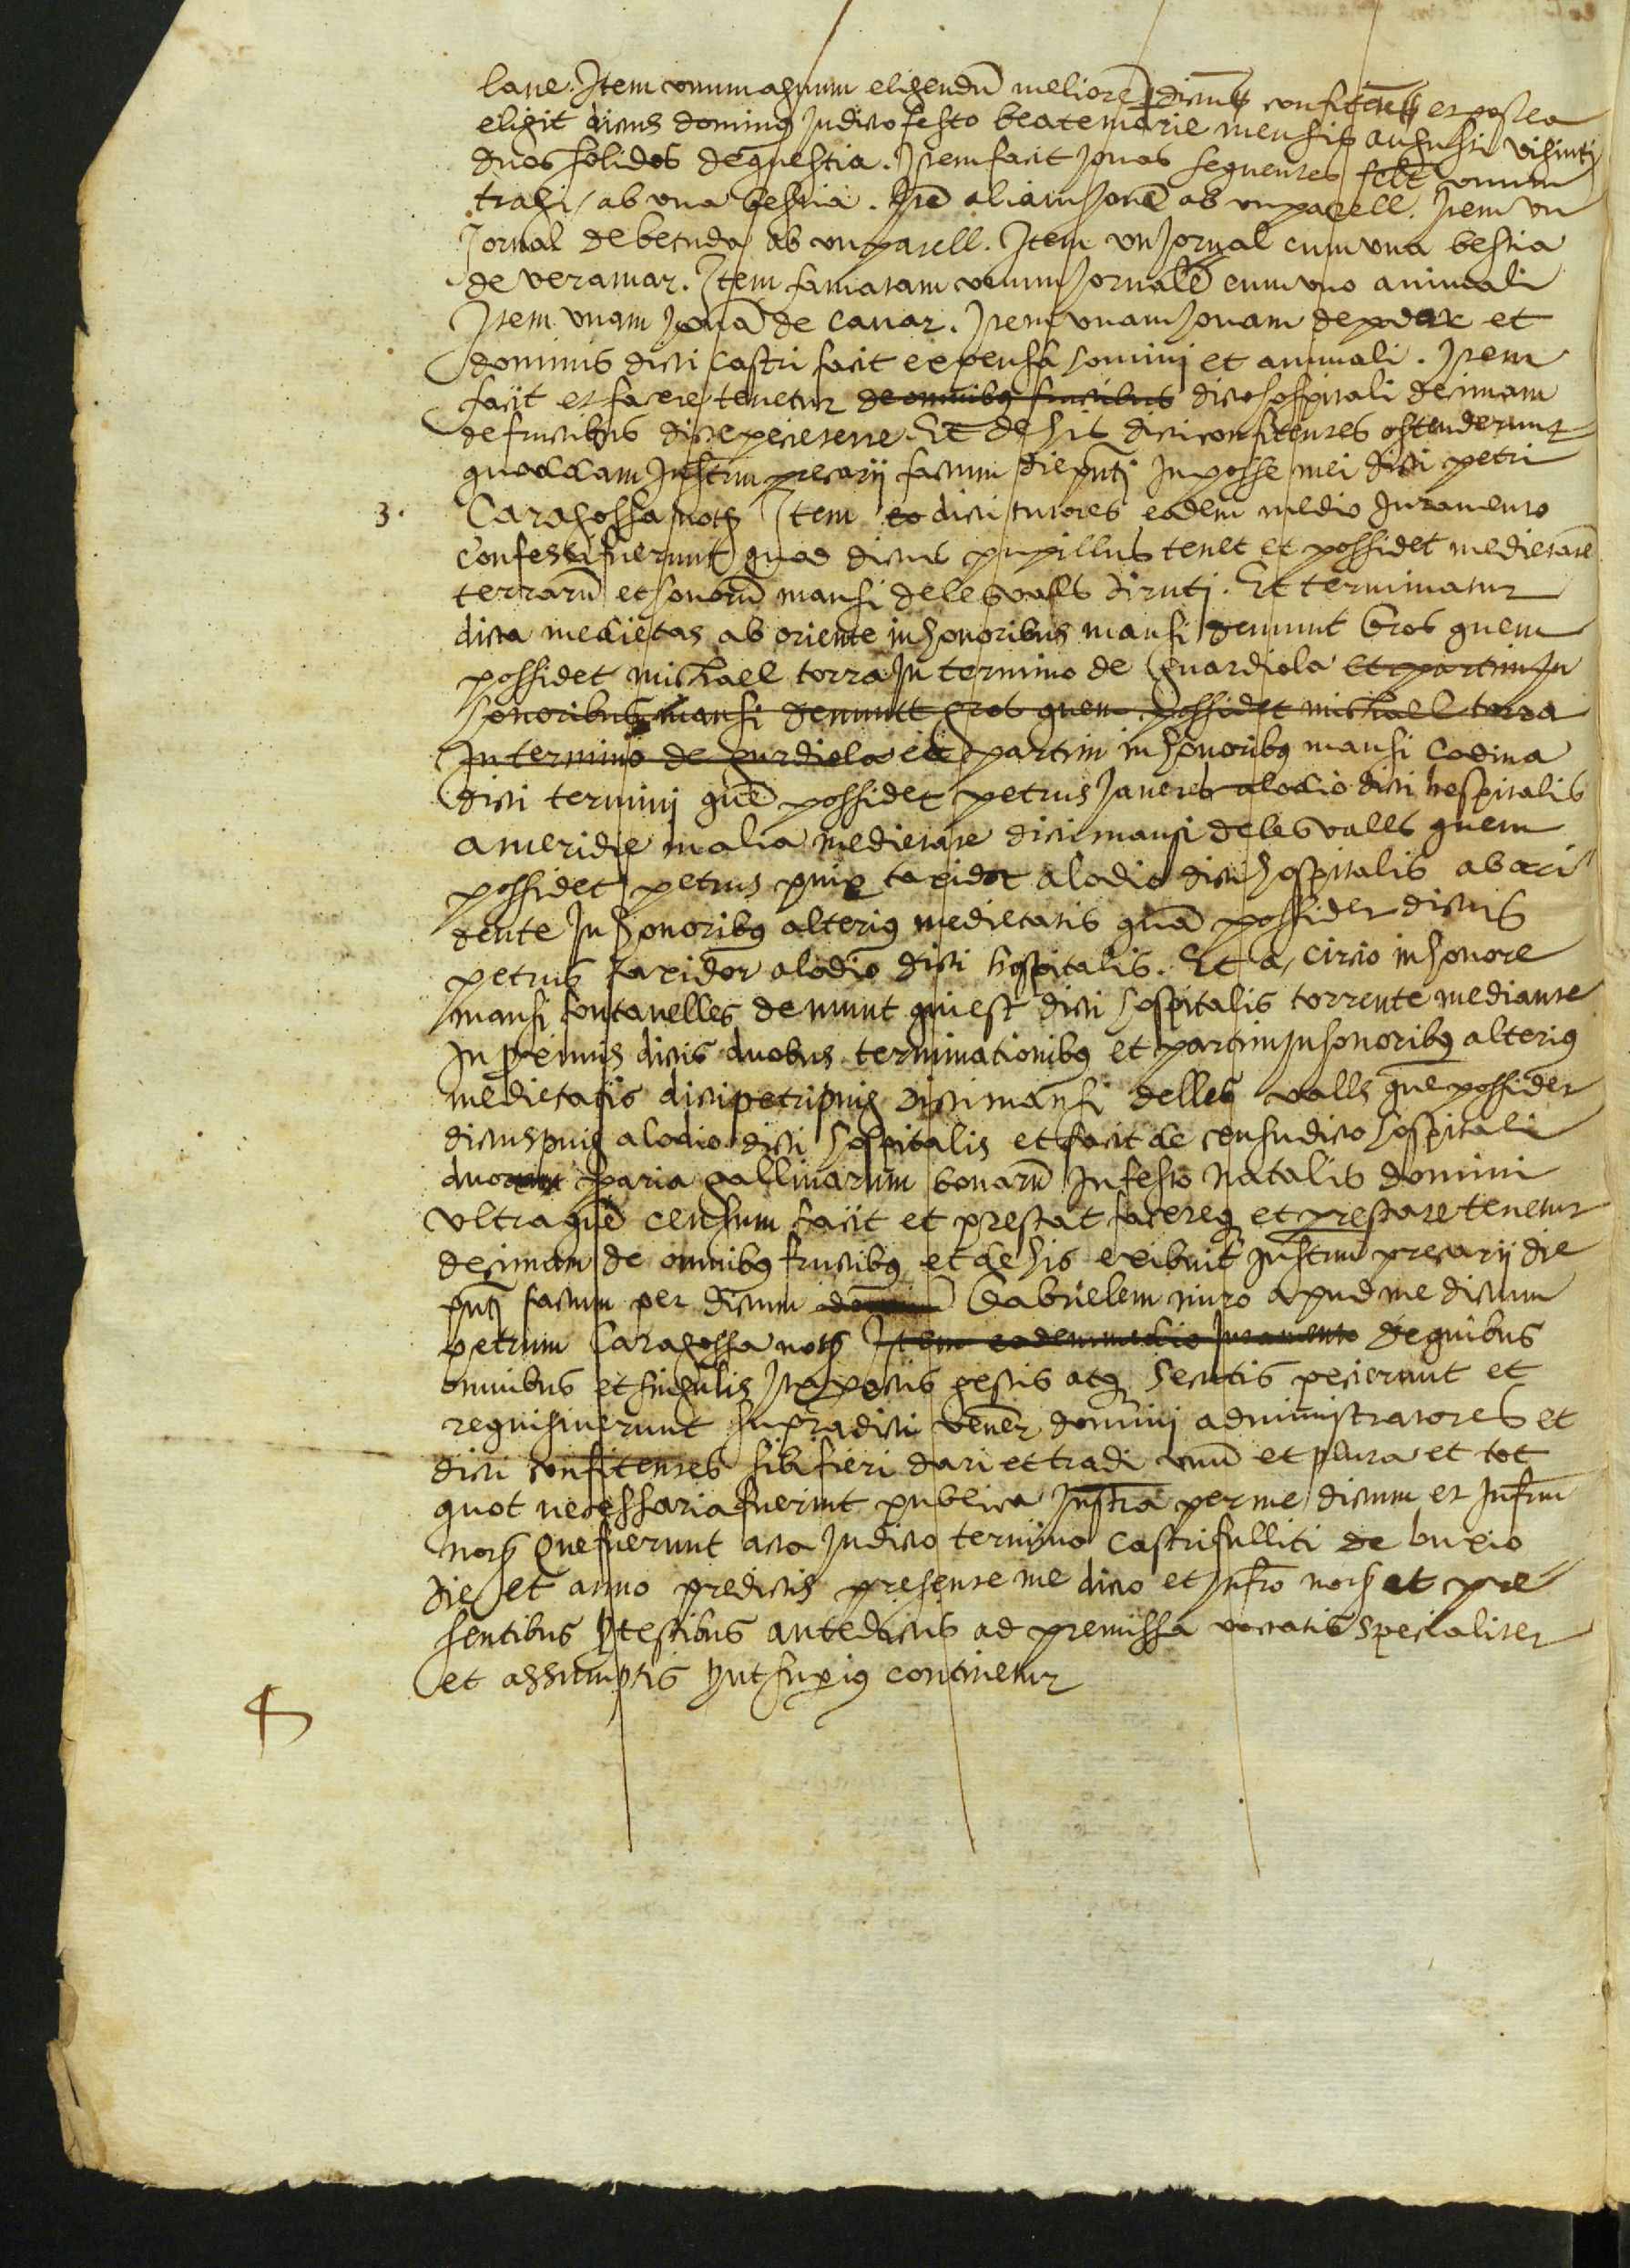 lane. Item unum agnum eligendū meliorē dictus confitens et postea
eligit dictus dominus In dicto festo beate marie mensis augusti viginti
duos solidos de questia. Item facit Jovas sequentes unum
tragi ab una bestia. Itē aliam Jovā ab un parell. Item un
Jornal de batuda ab un parell. Item un Jornal cum una bestia
de veramar. Item famatam unum Jornalē cum uno animali
Item unam Jovā de cavar. Item unam Jovam de podar et
dominus dicti castri facit expensā homini et animali. Item
facit et facere tenetur de omnibus fructibus dicto hospitali decimam
de fructibus dicte pecie terre. Et de his dicti confitentes ostenderunt
quoddam Instrm precarii factum die pnti In posse mei dicti petri
3. Caragossa notˢ Item eo dicti tutores eodem medio Juramento
confessi fuerunt quod dictus pupillus tenet et possidet medietatē
terrarū et honorū mansi de les valls diruti. Et terminatur
dicta medietas ab oriente in honoribus mansi de munt bros quem
possidet michael torra In termino de Guardiola et partim In
honoribus mansi de muntt gros quem possidet michael torra
In termino de gurdiola et partim in honoribus mansi codina
dicti termini quē possidet petrus Janeres alodio dicti hospitalis
a meridie in alia medietate dicti mansi de les valles quem
possidet petrus puig taxidor alodio dicti hospitalis ab occi
dente In honoribus alterius medietatis quā possidet dictus
petrus taxidor alodio dicti hospitalis. Et a circio in honore
mansi fontanelles de munt qui est dicti hospitalis torrente mediante
In primis dictis duobus terminationibus et partim In honoribus alterius
medietatis dicti petri puig dicti mansi de lles valls quē possidet
dictus puig alodio dicti hospitalis et facit de censu dicto hospitali
duo paria gallinarum bonarū In festo natalis domini
ultra quē censum facit et prestat facereq et prestare tenetur
decimam de omnibus fructibus et de his exibuit Instrm precarii die
pnti factum per dictum Gabrielem miro apud me dictum
petrum Caragossa notˢ Item eodem medio Juramento de quibus
omnibus et singulis Ita pactis gestis atq secutis pecierunt et
requisiverunt supradicti vener domini administratores et
dicti confitentes sibi fieri dari et tradi unū et plura et tot
quot necessaria fuerint publica Instra per me dictum et Infrm
notˢ Que fuerunt acta In dicto termino castri fulliti de buxio
die et anno predictis presente me dicto et Infro notˢ et pre
sentibus testibus antedictis ad premissa vocatis specialiter
et assumptis put superius continetur